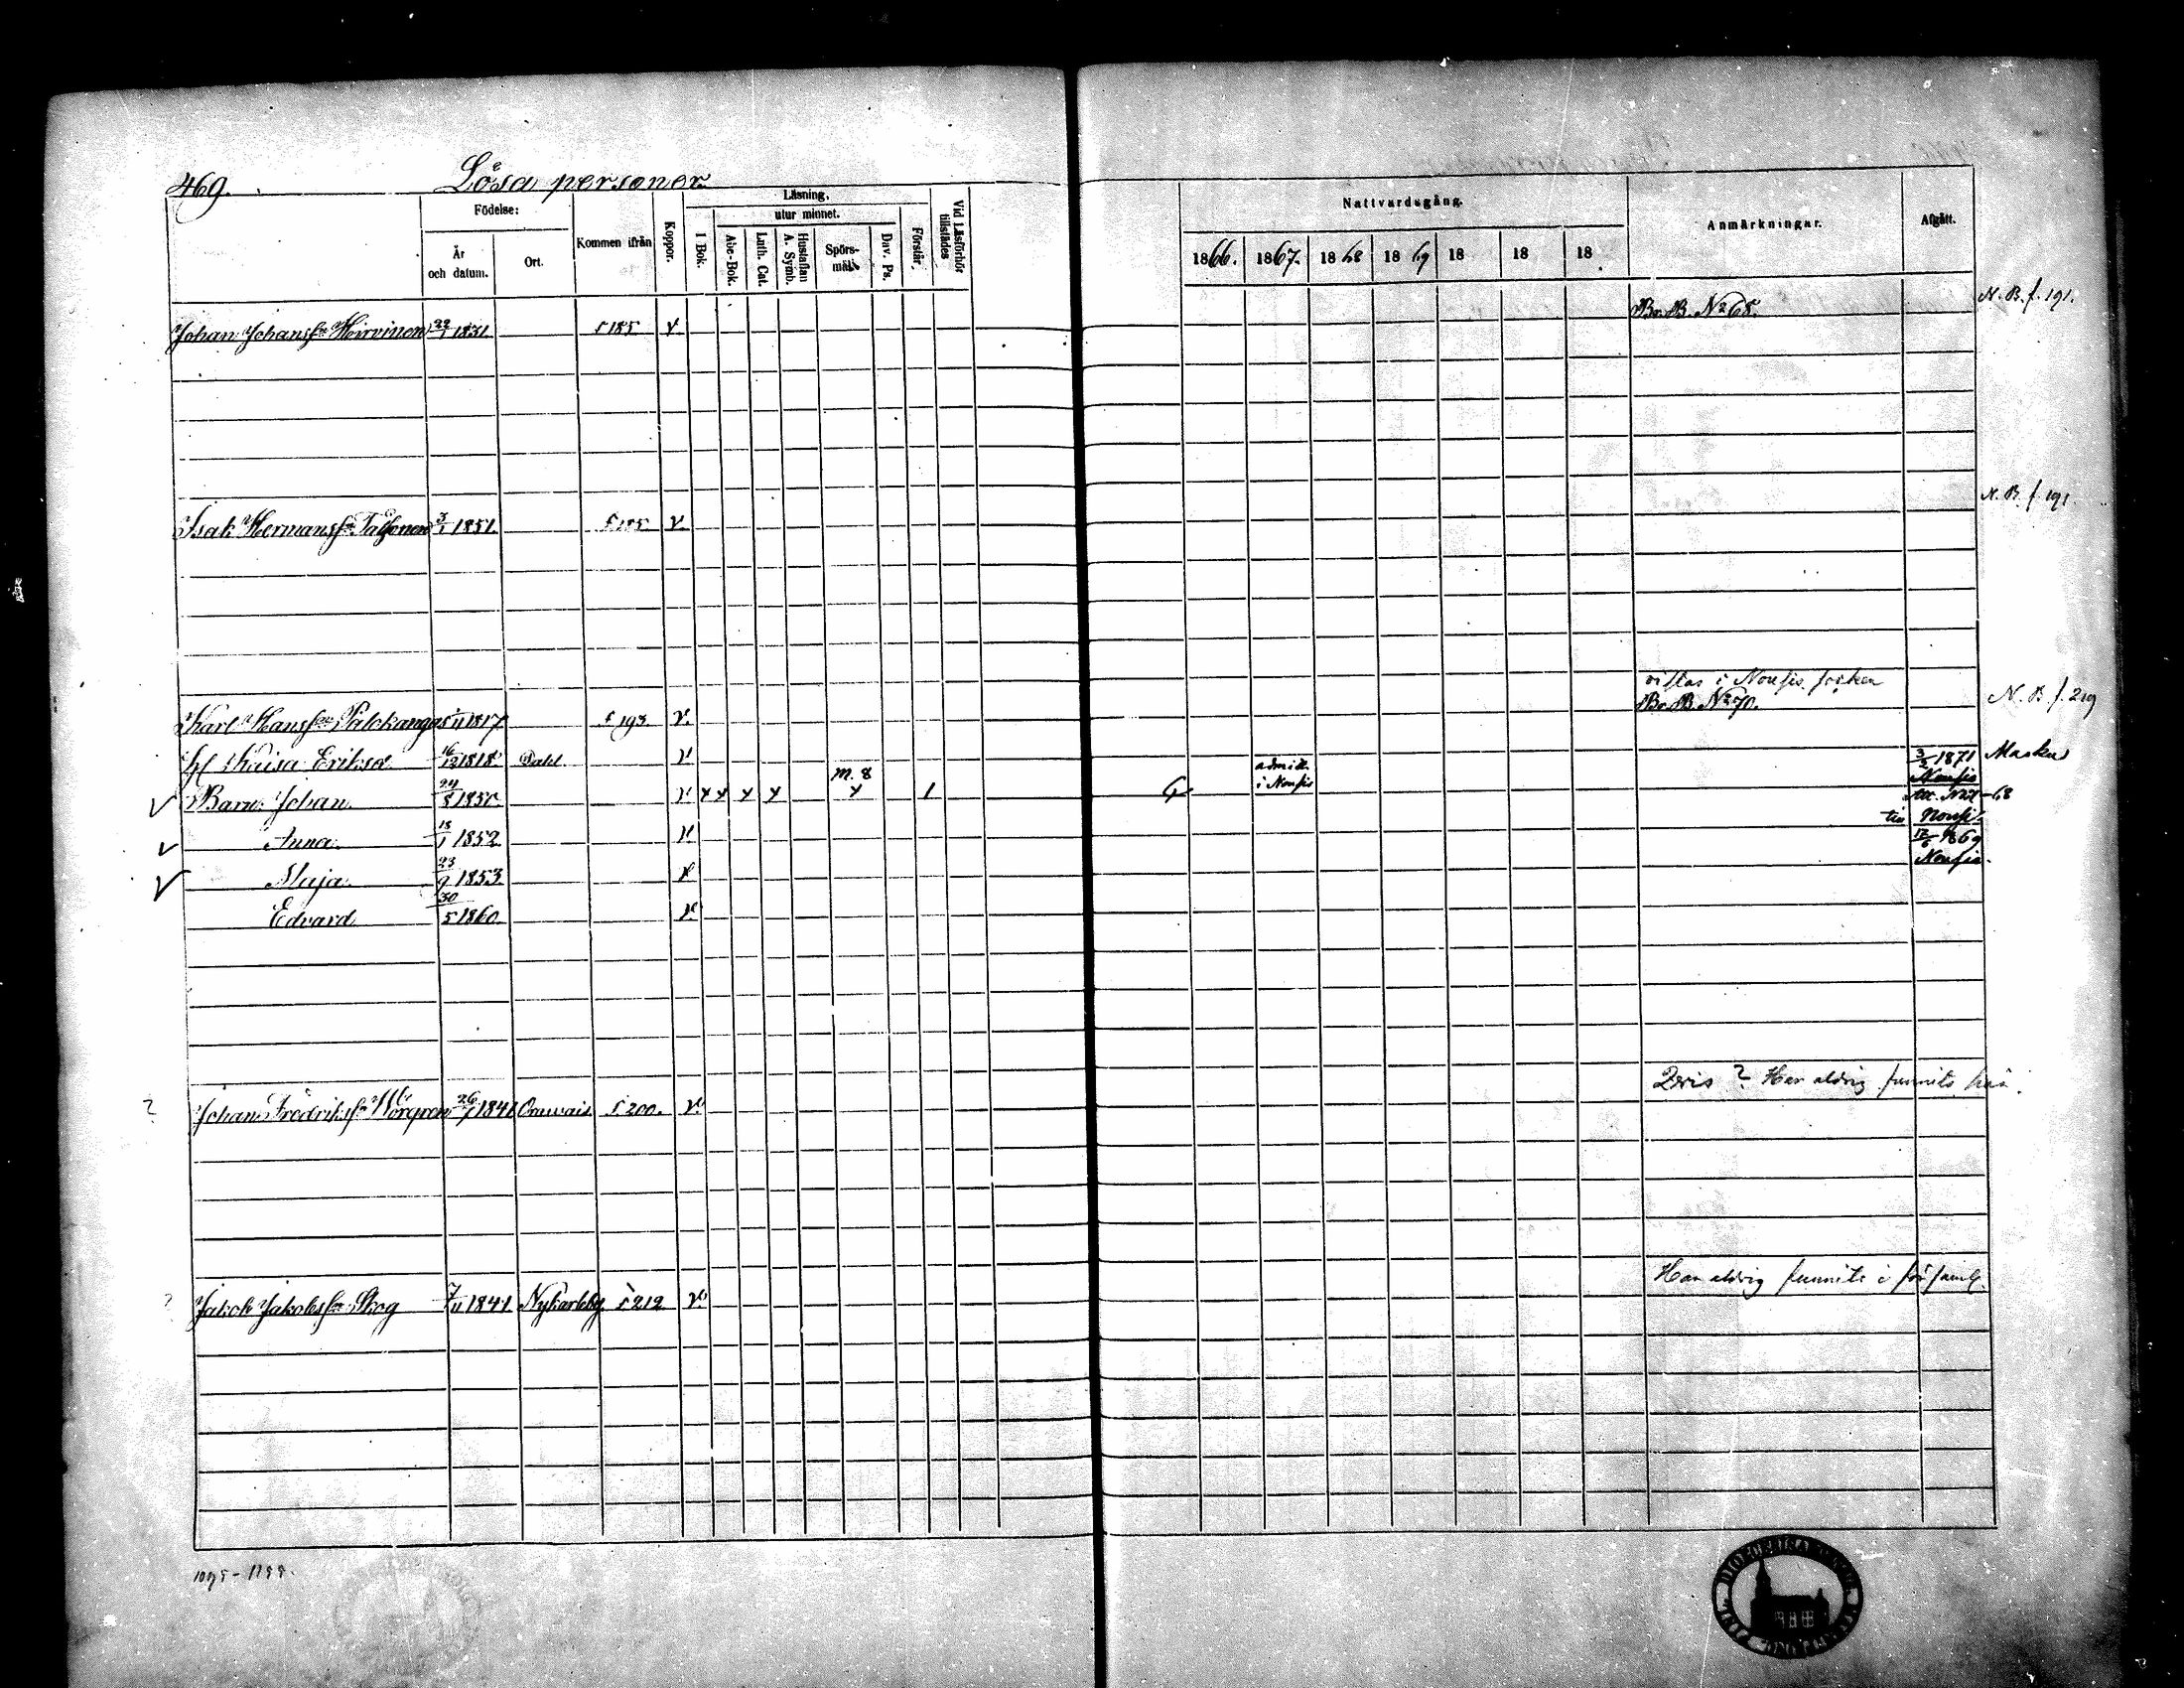 469. Lösa personer
Födelse:
År och datum.
Ort.
Kommen ifrån
Koppor.
Läsning,
I Bok.
utur minnet.
Abc-Bok.
Luth. Cat.
Hustaflan A. Symb.
Spörs-mål.
Dav. Ps.
Förstår.
Vid Läsförhör tillstädes
Nattvardsgång.
1866. 1867. 1868 1869 18 18 18
Anmärkningar.
Afgått.
Br. B. No 68. N. B. f. 191.
Johan Johansson Hirvinen 22/1 1851. f 185 v
N. B. f. 191
Isak Hermansson 3/1 1851. f 185 v
vistas i Nousis socken
Br. B. No 70. N. B. f. 219
Karl Hansson Palokangas 5/11 1817 f 193. v.
H. Kaisa Eriksd. 16/12 1818 v 3/2 1871 Maskus
m. 8 admitt. i Nousis Nousis
Barn: Johan 24/8 1850 v x x x x x 1
till Nousis
Anna. 18/1 1852 v 12/6 1869
Nousis.
Maja. 23/9 1853 v
Edvard 30/5 1860. v
Har aldrig funnits här.
? Johan Fredriksson Norgren 26/7 1841 Orawais f 200. v
Har aldrig funnits i församl.
? Jakob Jakobsson Skog 7/11 1841 Nykarleby f 212 v